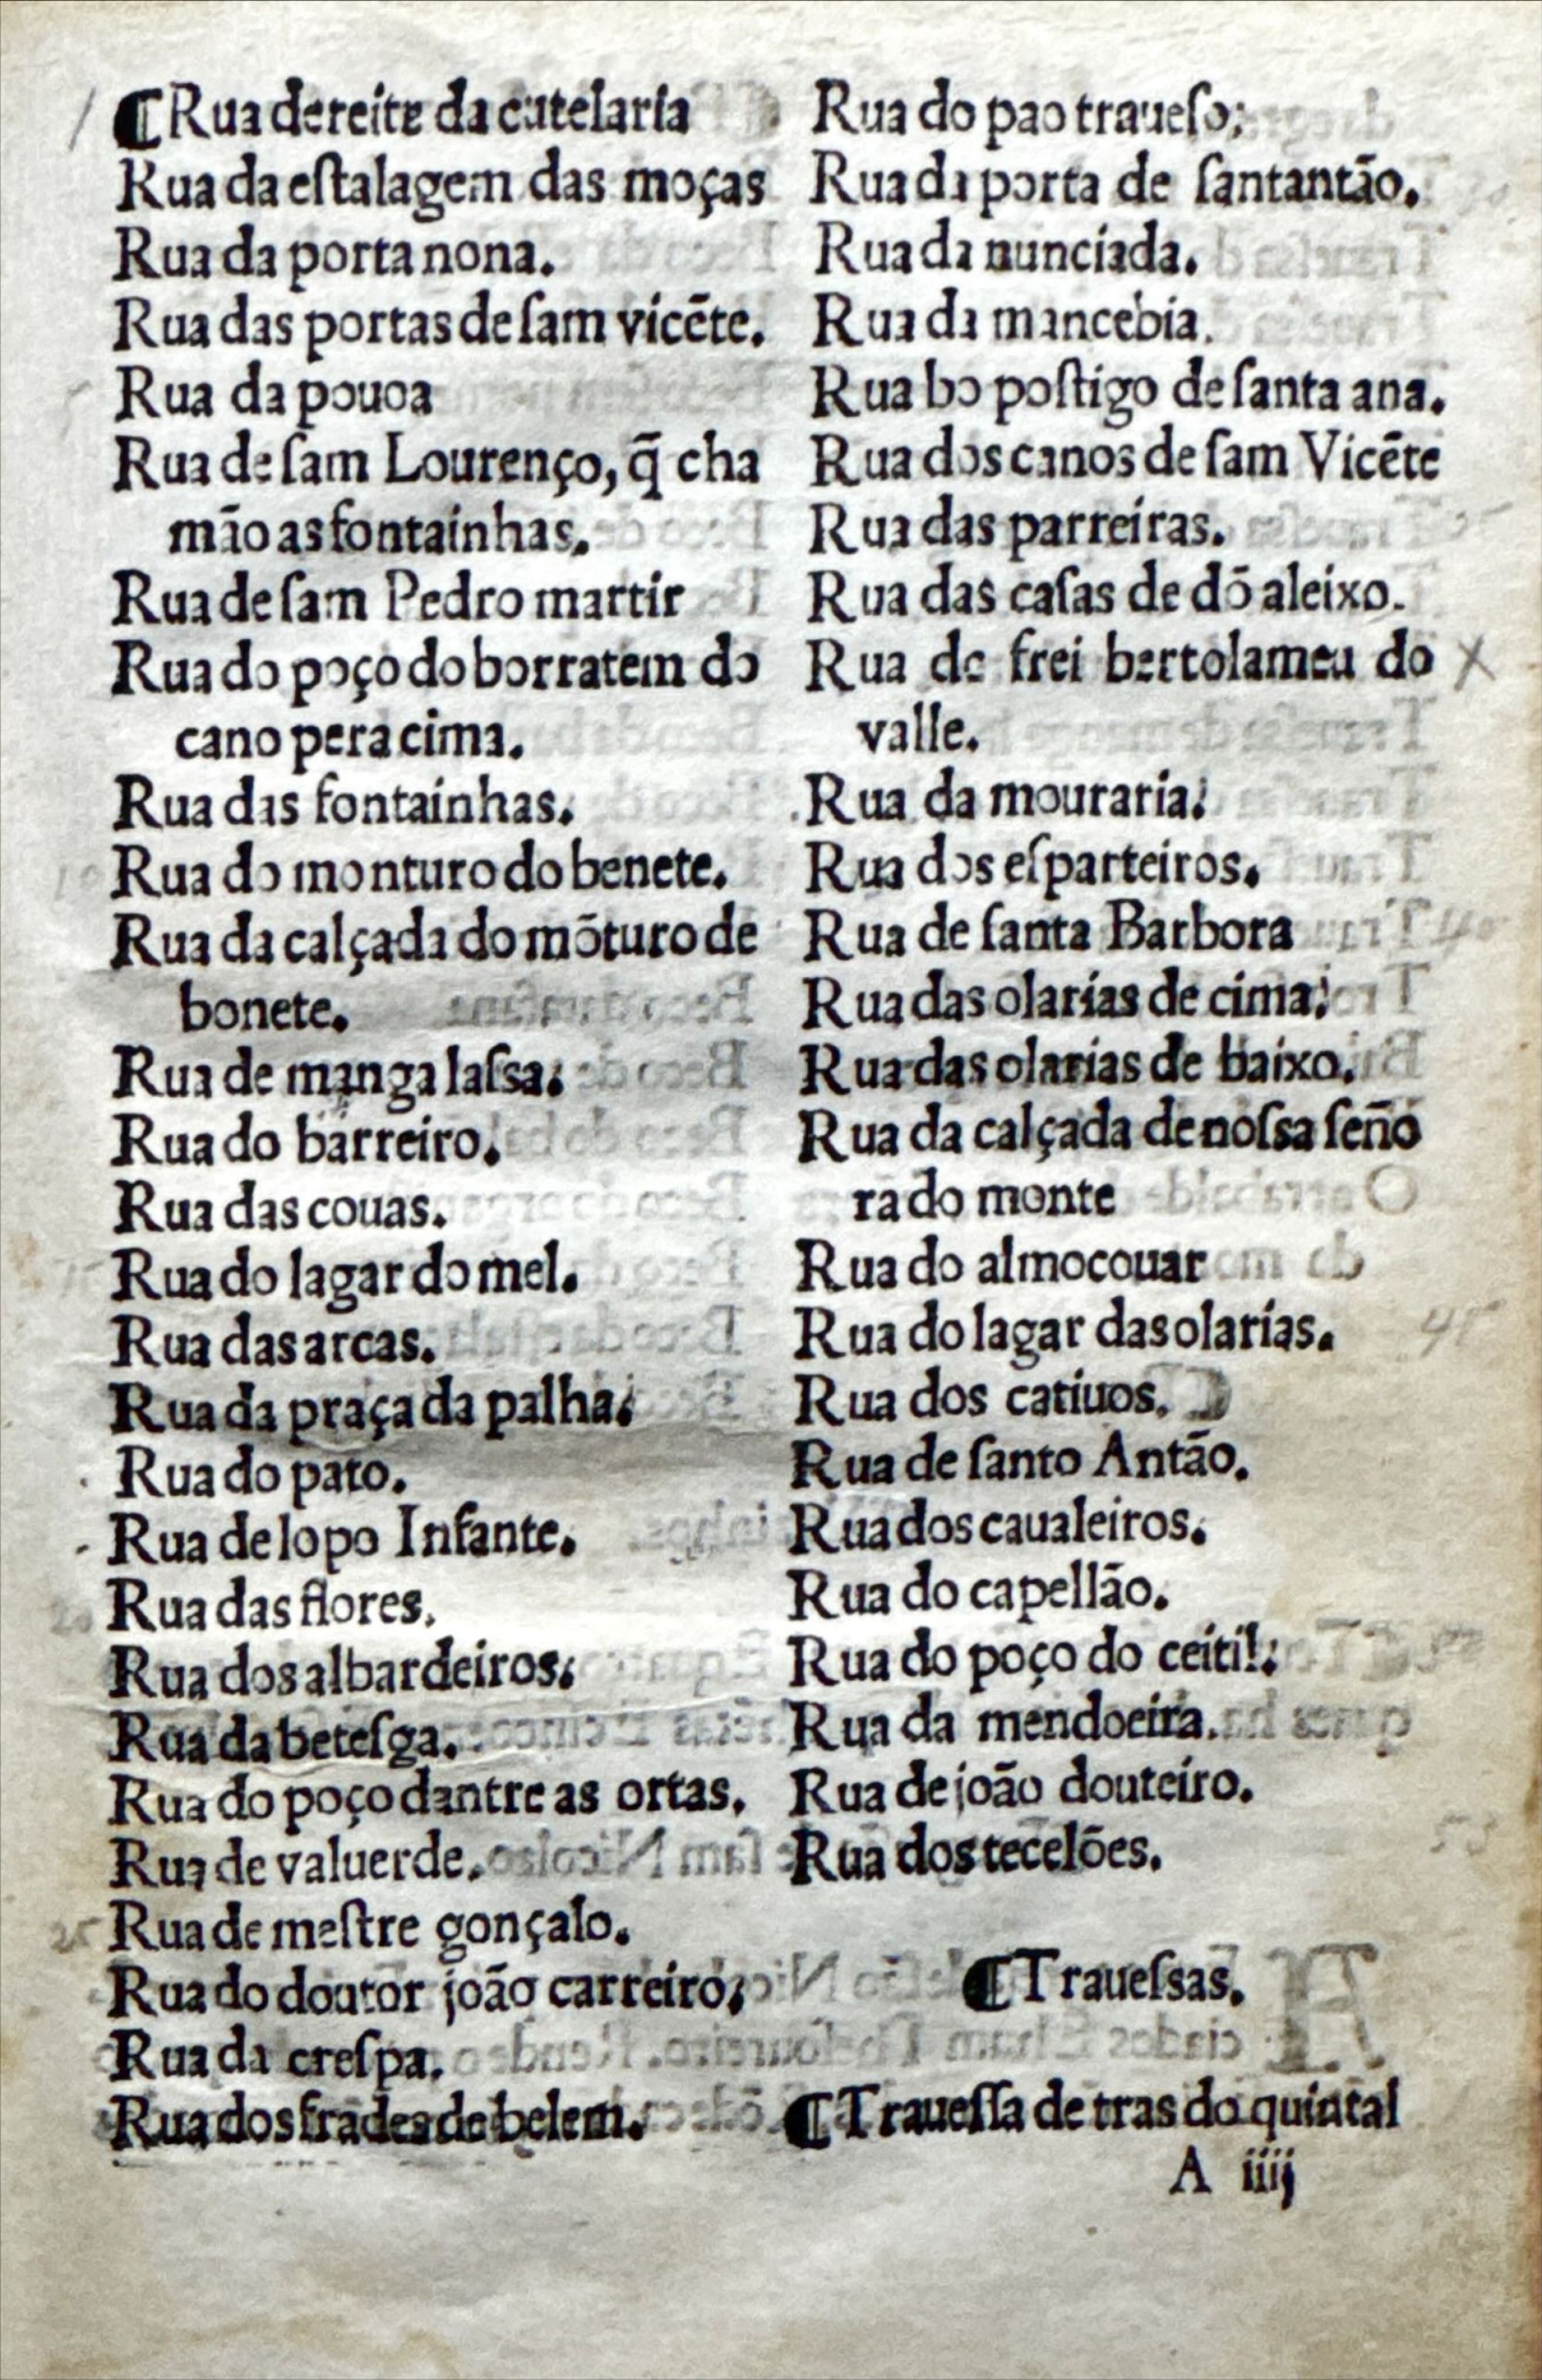 ¶Rua dereite da cutelaria
Rua da eſtalagem das moças
Rua da porta nona.
Rua das portas de ſam vicēte.
Rua da pouoa
Rua de ſam Lourenço, q̄ cha
mão as fontainhas.
Rua de ſam Pedro martir
Rua do poço do borratem do
cano pera cima.
Rua das fontainhas.
Rua do monturo do benete.
Rua da calçada do mōturo de
bonete.
Rua de manga laſsa.
Rua do barreiro.
Rua das couas.
Rua do lagar do mel.
Rua das arcas.
Rua da praça da palha.
Rua do pato.
Rua de lopo Infante.
Rua das flores.
Rua dos albardeiros.
Rua da beteſga.
Rua do poço dantre as ortas.
Rua de valuerde.
Rua de meſtre gonçalo.
Rua do doutor joão carreiro.
Rua da creſpa.
Rua dos frades de belem.
Rua do pao traueſo.
Rua da porta de ſantantão.
Rua da nunciada.
Rua da mancebia.
Rua bo poſtigo de ſanta ana.
Rua dos canos de ſam Vicēte
Rua das parreiras.
Rua das caſas de dō aleixo.
Rua de frei bertolameu do
valle.
Rua da mouraria.
Rua dos eſparteiros.
Rua de ſanta Barbora
Rua das olarias de cima.
Rua das olarias de baixo.
Rua da calçada de noſsa ſeño
ra do monte
Rua do almocouar
Rua do lagar das olarias.
Rua dos catiuos.
Rua de ſanto Antão.
Rua dos caualeiros.
Rua do capellão.
Rua do poço do ceitil.
Rua da mendoeira.
Rua de joão douteiro.
Rua dos tecelões.
¶Traueſsas.
¶Traueſſa de tras do quintal
A iiij